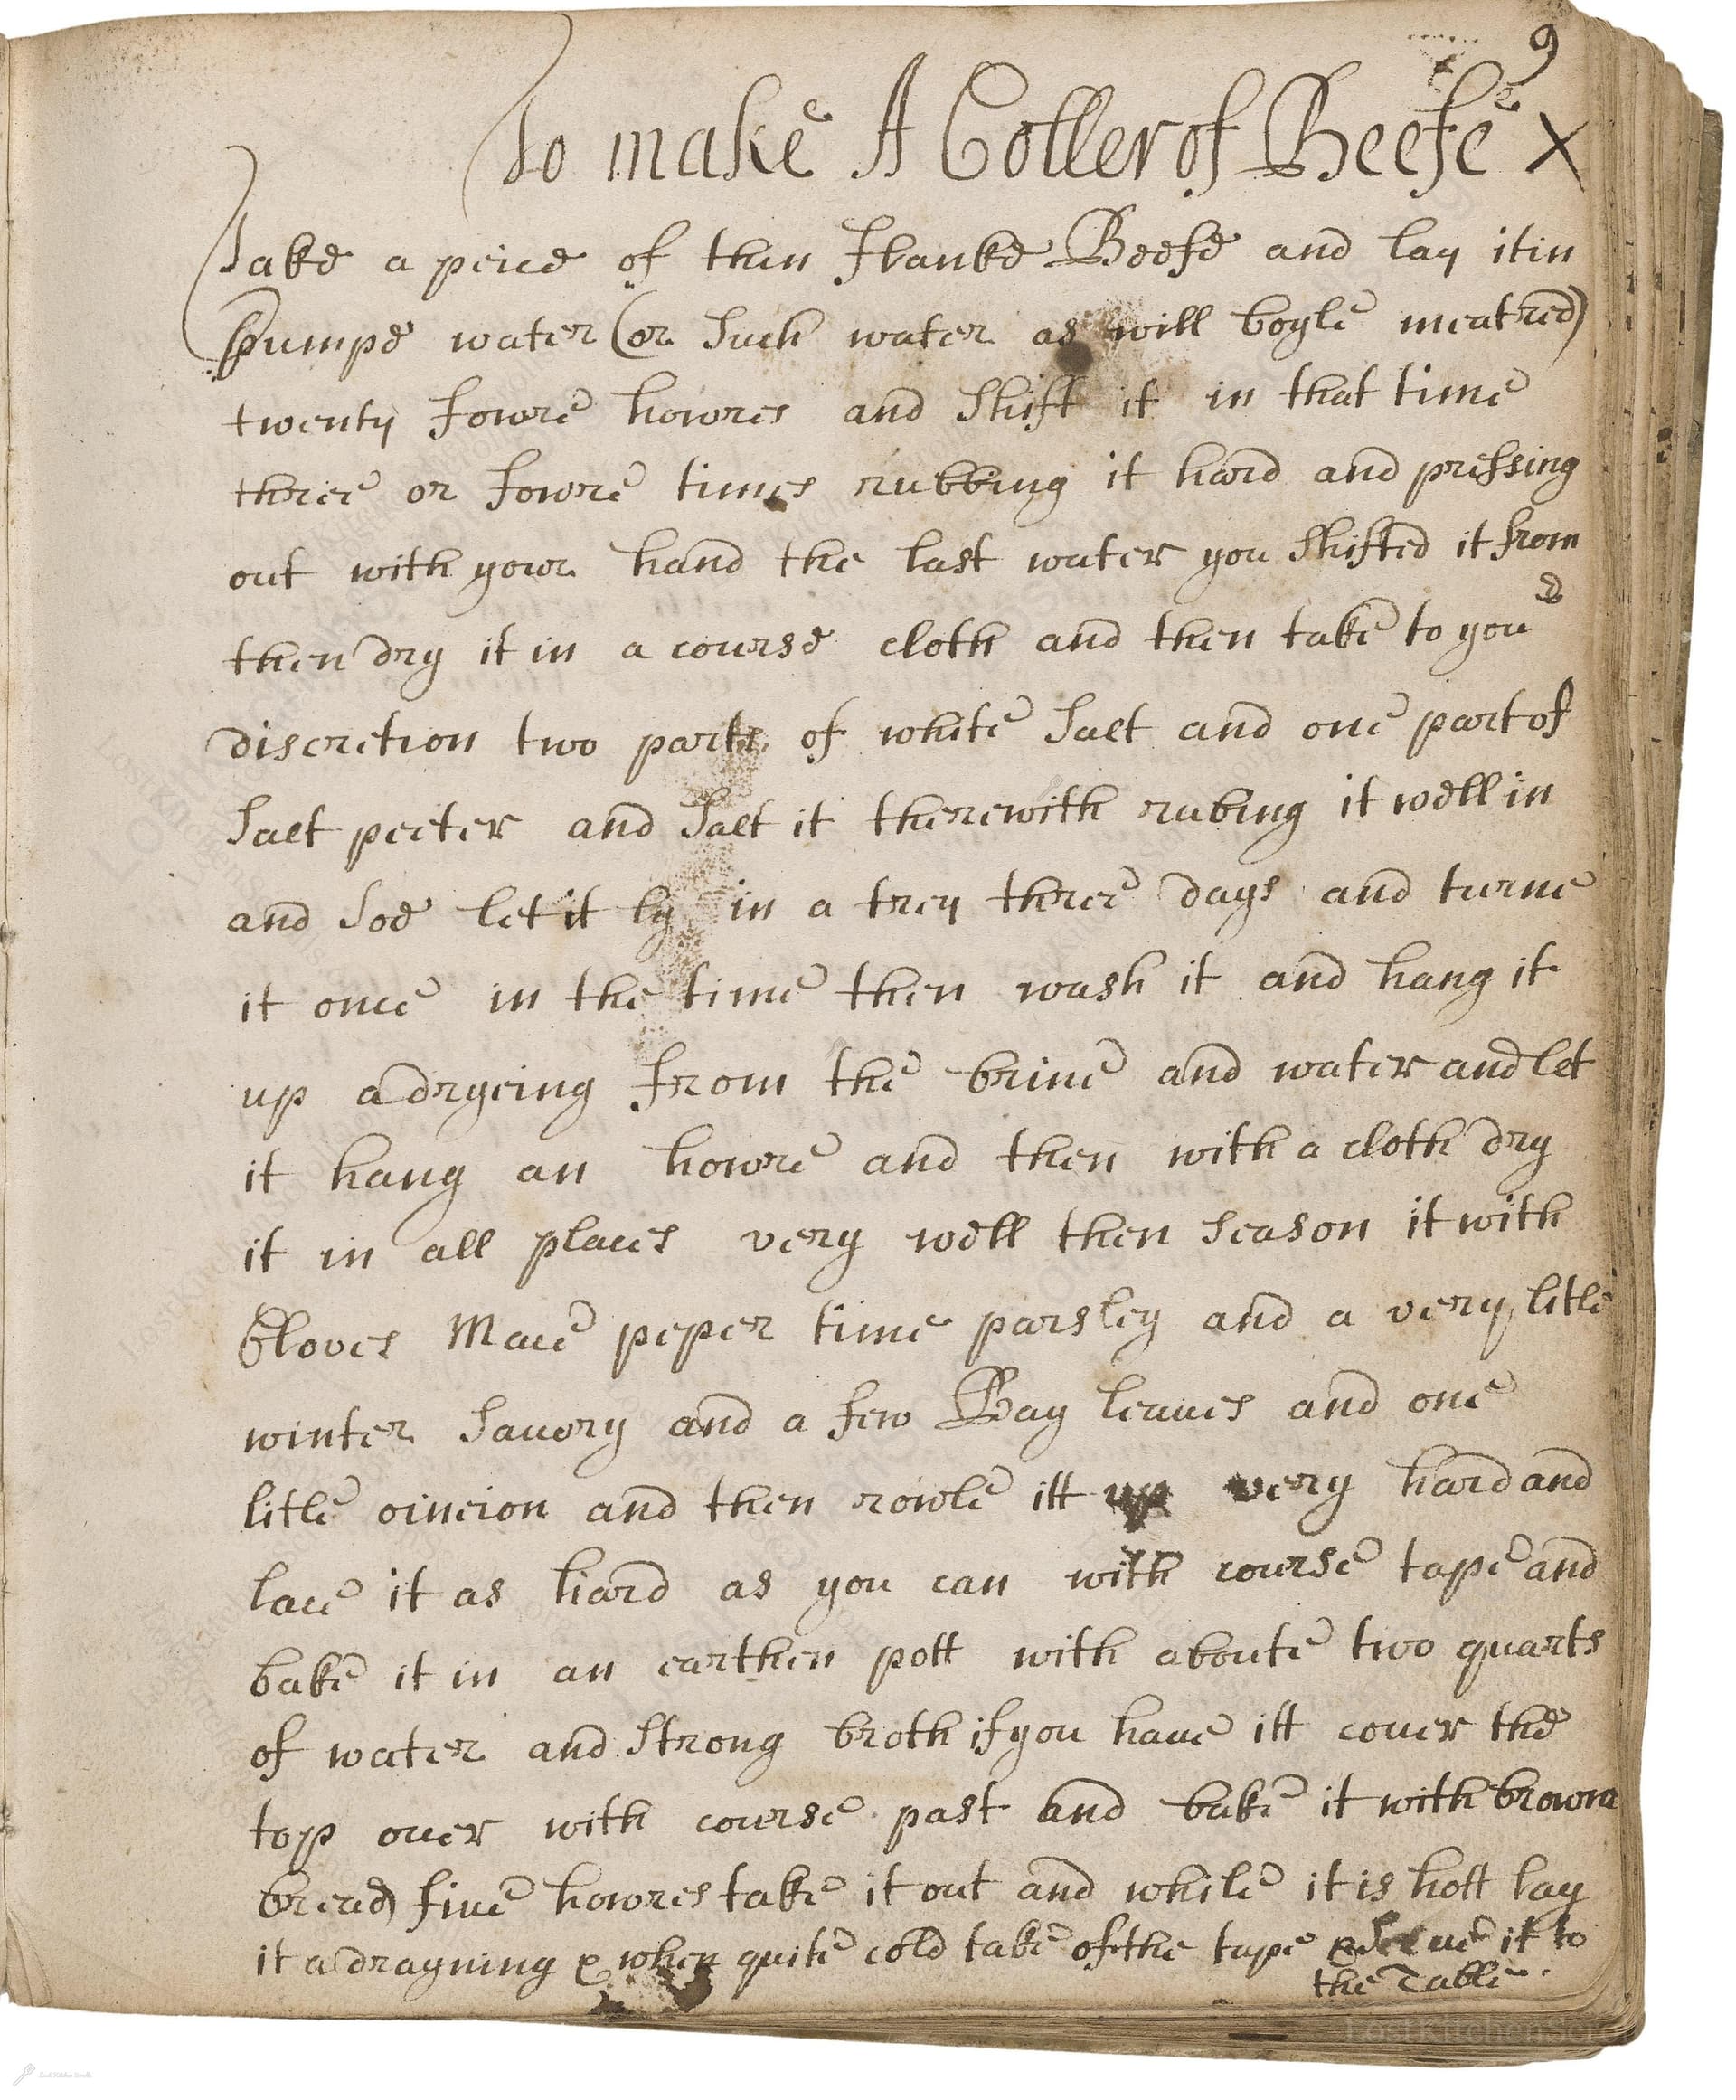 9
To make A Coller of Beefe X
Take a peice of thin Flanke Beefe and lay it in
Pumpe water (or such water as will boyle meat red)
twenty fowre howres and shift it in that time
three or fowre times rubbing it hard and pressing
out with your hand the last water you shifted it from
then dry it in a course cloth and then take to you r
discretion two parts of white salt and one part of
salt peeter and salt it therewith rubing it well in
and soe let it ly in a trey three days and turne
it once in the time then wash it and hang it
up a dryeing from the brine and water and let
it hang an howre and then with a cloth dry
it in all places very well then season it with
Cloves Mace peper time parsley and a very litle
winter savory and a few Bay leaves and one
litle oineion and then rowle itt up very hard and
lace it as hard as you can with course tape and
bake it in an earthen pott with aboute two quarts
of water and strong broth if you haue itt couer the
top ouer with course past and bake it with brown
bread fiue howres take it out and while it is hott lay
it a drayning & when quite cold take of the tape & serue it to
the Table.